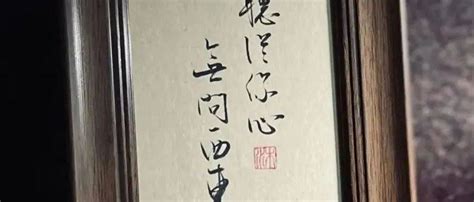 聽從你心
無問西東